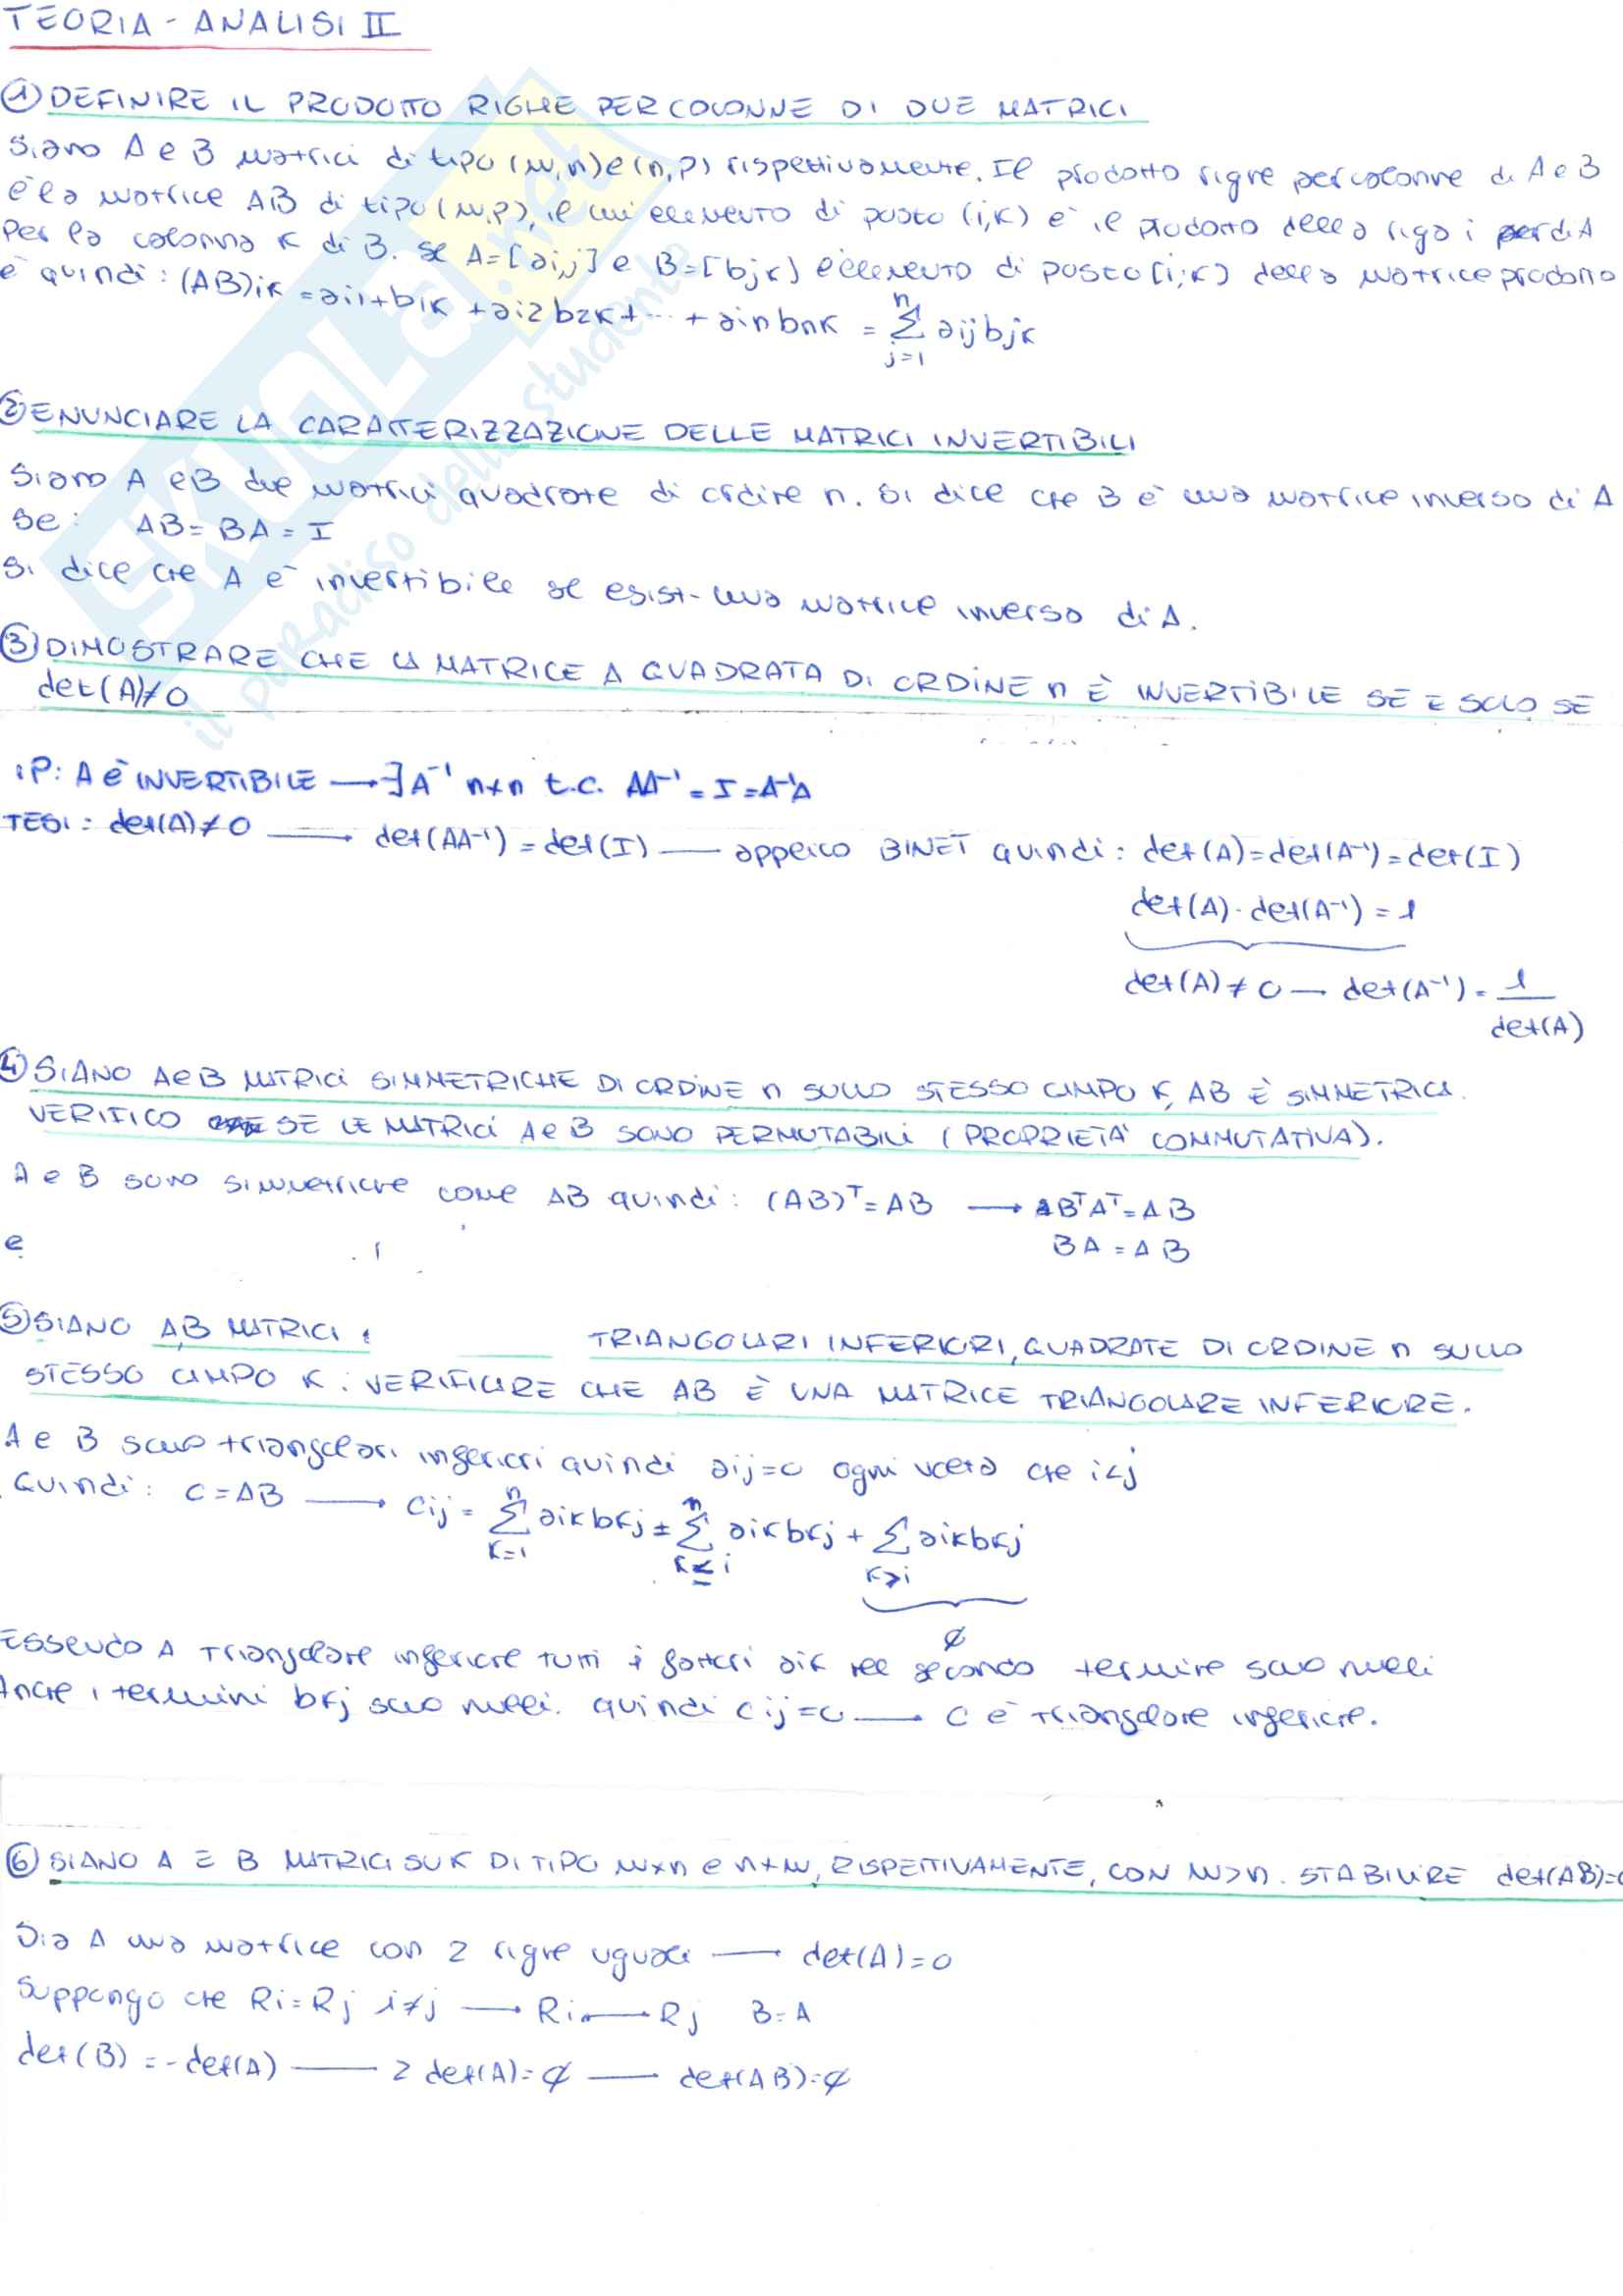 TEORIA - ANALISI II
① DEFINIRE IL PRODOTTO RIGHE PER COLONNE DI DUE MATRICI
Siano A e B matrici di tipo (m,n) e (n,p) rispettivamente. Il prodotto righe per colonne di A e B
è la matrice AB di tipo (m,p), il cui elemento di posto (i,k) è il prodotto della riga i di A
per la colonna k di B. se A=[aij] e B=[bjk] l'elemento di posto [i;k) della matrice prodotto
è quindi: (AB)ik = ai1+b1k + ai2 b2k + ... + ain bnk = n∑j=1 aij bjk
② ENUNCIARE LA CARATTERIZZAZIONE DELLE MATRICI INVERTIBILI
Siano A e B due matrici quadrate di ordine n. Si dice che B è una matrice inversa di A
se: AB = BA = I
Si dice che A è invertibile se esist- una matrice inversa di A.
③ DIMOSTRARE CHE LA MATRICE A QUADRATA DI ORDINE n È INVERTIBILE SE E SOLO SE
det(A)≠0
iP: A È INVERTIBILE → ∃ A⁻¹ n×n t.c. AA⁻¹ = I = A⁻¹A
TESI: det(A)≠0 → det(AA⁻¹) = det(I) — applico BINET quindi: det(A)=det(A⁻¹)=det(I)
det(A)·det(A⁻¹) = 1
det(A) ≠ 0 — det(A⁻¹) = 1/det(A)
④ SIANO A e B MATRICI SIMMETRICHE DI ORDINE n SULLO STESSO CAMPO K, AB È SIMMETRICA.
VERIFICO SE LE MATRICI A e B SONO PERMUTABILI (PROPRIETA' COMMUTATIVA).
A e B sono simmetriche come AB quindi: (AB)ᵀ = AB → BᵀAᵀ = AB
e BA = AB
⑤ SIANO A,B MATRICI TRIANGOLARI INFERIORI, QUADRATE DI ORDINE n SULLO
STESSO CAMPO K. VERIFICARE CHE AB È UNA MATRICE TRIANGOLARE INFERIORE.
A e B sono triangolari inferiori quindi aij=0 ogni volta che i<j
Quindi: C = AB → cij = n∑k=1 aik bkj = n∑k≤i aik bkj + ∑k>i aik bkj
∅
Essendo A triangolare inferiore tutti i fattori aik nel secondo termine sono nulli
Anche i termini bkj sono nulli. quindi cij=0 → C è triangolare inferiore.
⑥ SIANO A E B MATRICI SU K DI TIPO m×n e n×m, RISPETTIVAMENTE, CON m>n. STABILIRE det(AB)=0
Sia A una matrice con 2 righe uguali → det(A)=0
Suppongo che Ri = Rj i≠j → Ri → Rj B=A
det(B) = -det(A) — 2 det(A)=∅ — det(AB)=∅
SKUOLA.net
il paradiso dello studente